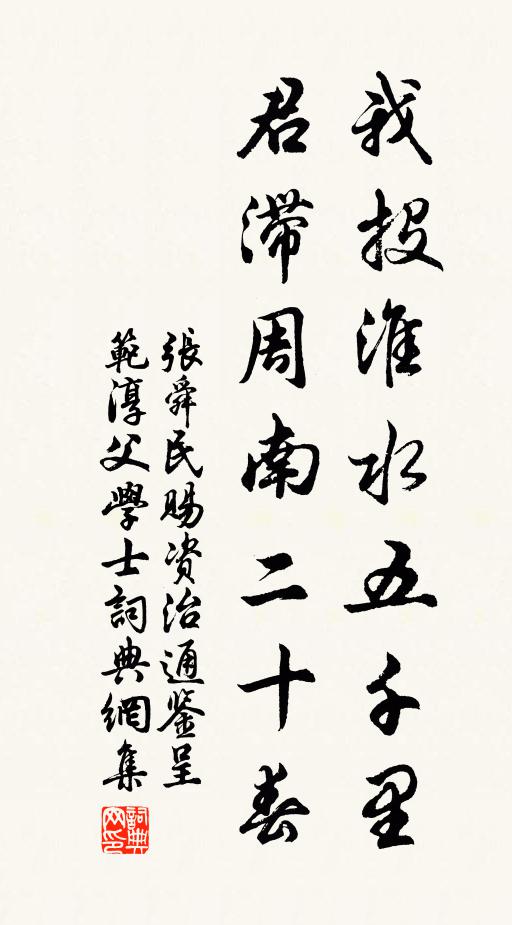 我投淮水五千里
君滞周南二十春
張舜民賜资治通鉴呈
範淳父學士詞典網集
詞典网印